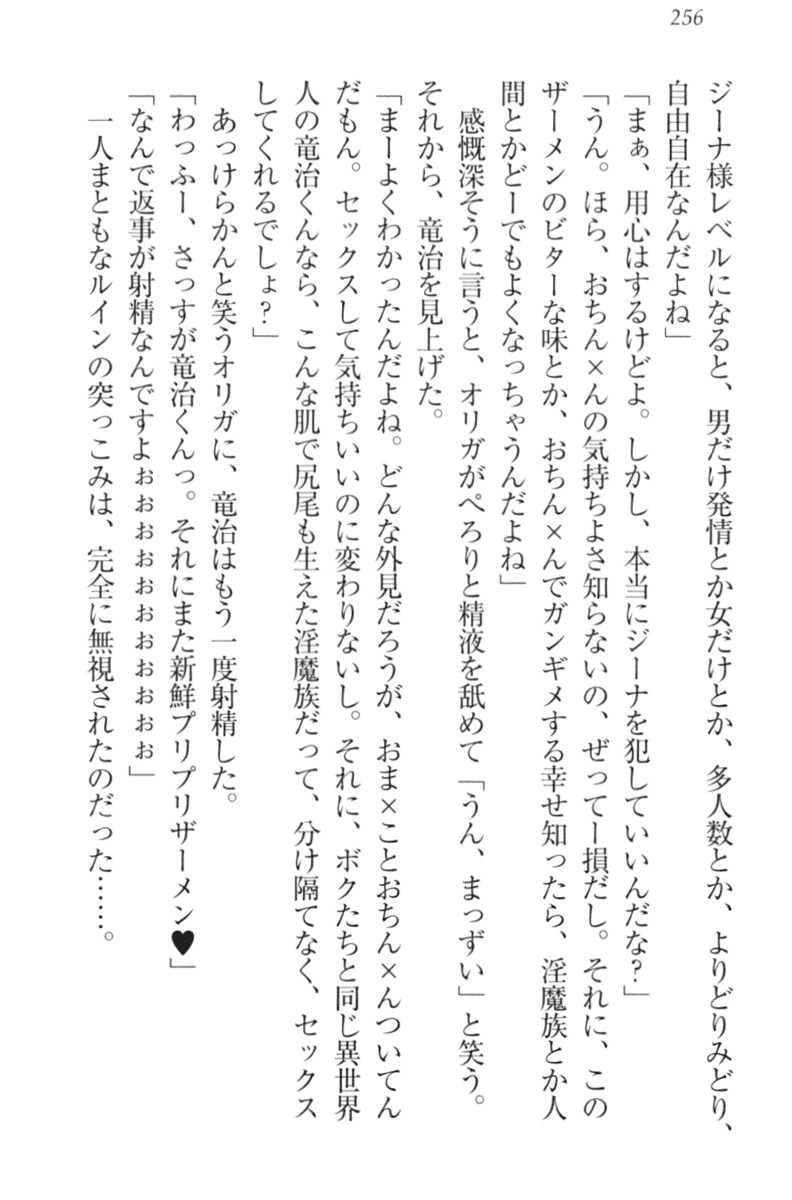 256
ジーナ様レベルになると、男だけ発情とか女だけとか、多人数とか、よりどりみどり、
自由自在なんだよね」
「まぁ、用心はするけどよ。しかし、本当にジーナを犯していいんだな？」
「うん。ほら、おちん×んの気持ちよさ知らないの、ぜってー損だし。それに、この
ザーメンのビターな味とか、おちん×んでガンギメする幸せ知ったら、淫魔族とか人
間とかどーでもよくなっちゃうんだよね」
　感慨深そうに言うと、オリガがぺろりと精液を舐めて「うん、まっずい」と笑う。
それから、竜治を見上げた。
「まーよくわかったんだよね。どんな外見だろうが、おま×ことおちん×んついてん
だもん。セックスして気持ちいいのに変わりないし。それに、ボクたちと同じ異世界
人の竜治くんなら、こんな肌で尻尾も生えた淫魔族だって、分け隔てなく、セックス
してくれるでしょ？」
　あっけらかんと笑うオリガに、竜治はもう一度射精した。
「わっふー、さっすが竜治くんっ。それにまた新鮮プリプリザーメン♥」
「なんで返事が射精なんですよぉぉぉぉぉぉぉぉぉぉ」
　一人まともなルインの突っこみは、完全に無視されたのだった……。